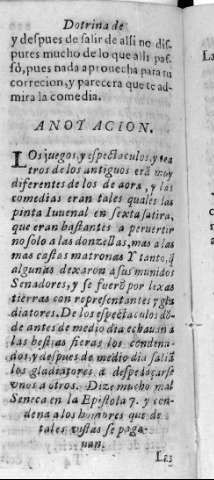 Dotrina de
y despues de salir de alli no dis-
putes mucho de lo que alli pas-
só, pues nada aprouecha para tu
correcion, y parecera que te ad-
mira la comedia.
ANOTACION.
LOs juegos, y espectaculos, y tea
tros de los antiguos erã muy
diferentes de los de aora, y las
comedias eran tales quales las
pinta Iuuenal en sexta satira,
que eran bastantes a peruertir
no solo a las donzellas, mas a las
mas castas matronas Y tanto, q̃
algunas dexaron a sus maridos
Senadores, y se fuerõ por lexas
tierras con representantes y gla
diatores. De los espectaculos dõ-
de antes de medio dia echauan a
las bestias fieras los condena-
dos, y despues de medio dia saliã
los gladiatores a despedaçarse
vnos a otros. Dize mucho mal
Seneca en la Epistola 7. y con-
dena a los hombres que de
tales vistas se paga
uan.